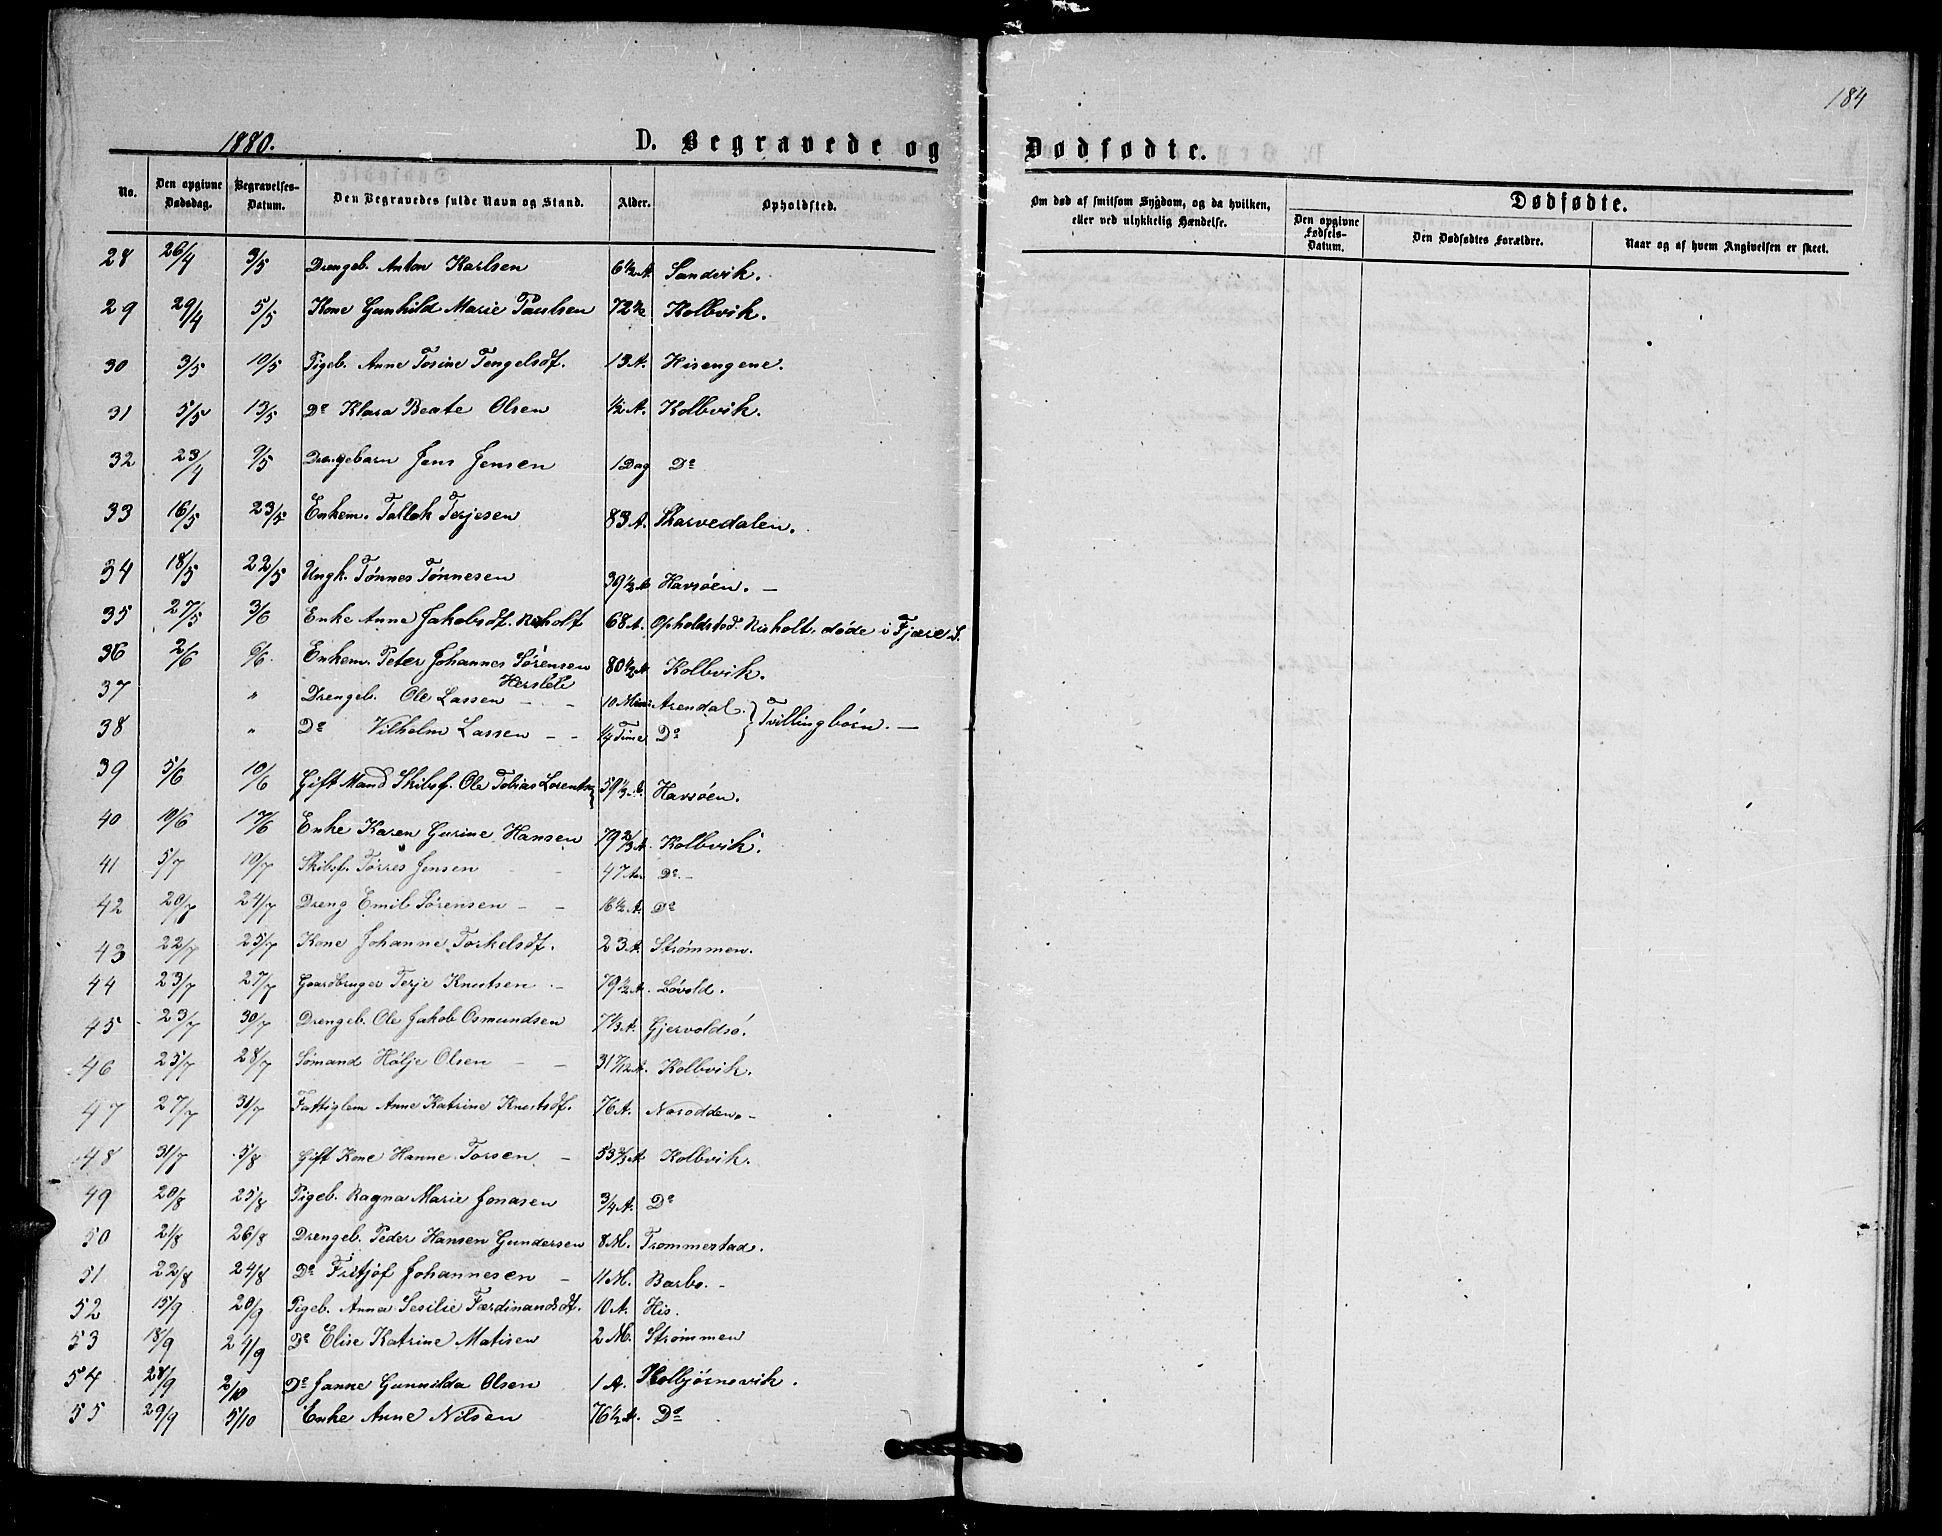 184
1880. D. Begravede og Dødfødte.
No. Den opgivne Dødsdag. Begravelses-Datum. Den Begravedes fulde Navn og Stand. Alder. Opholdsted. Om død af smitsom Sygdom, og da hvilken, eller ved ulykkelig Hændelse. Dødfødte. Den opgivne Fødsels-Datum. Den Dødfødtes Forældre. Naar og af hvem Angivelsen er skeet.
28 26/4 3/5 Drengeb. Anton Karlsen 6½ A. Sandvik.
29 29/4 5/5 Kone Gunhild Marie Paulsen 72 Kolbvik.
30 3/5 10/5 Pigeb. Anne Tosine Tengelsdf. 13 A. Hisengene.
31 5/5 13/5 Do Klara Beate Olsen ½ A. Kolbvik.
32 23/4 9/5 Drengebarn Jens Jensen 1 Dag Do
33 16/5 23/5 Enkem. Tallak Terjesen 83 A. Skarvedalen.
34 18/5 22/5 Ungk. Tønnes Tønnesen 39½ A Havsøen. —
35 27/5 3/6 Enke Anne Jakobsdf. Risholt 68 A. Opholdsted. Risholt, døde i Fjære S.
36 2/6 6/6. Enkem. Peter Johannes Sørensen Hersleb 80½ A Kolbvik.
37 " Drengeb. Ole Lassen - - 10 Min. Arendal. } Tvillingbørn. —
38 " Do Vilhelm Lassen - - ¼ Time Do
39 5/6 10/6 Gift Mand Skibsf. Ole Tobias Lorents. 59⅓ A. Havsøen.
40 10/6 17/6 Enke Karen Gurine Hansen 79⅔ A. Kolbvik.
41 5/7 10/7 Skibsf. Tørres Jensen 47 Aar Do. -
42 20/7 24/7 Dreng Emil Sørensen - - 16½ A. Do
43 22/7 25/7 Kone Johanne Torkelsdf. 23 A. Strømmen.
44 23/7 27/7 Gaardbruger Terje Knutsen - 79½ A. Løvold.
45 23/7 30/7 Drengeb. Ole Jakob Osmundsen 7⅓ A. Gjervoldsø.
46 25/7 28/7 Sømand Hølje Olsen - - 31 7/12 A. Kolbvik.
47 27/7 31/7 Fattiglem Anne Katrine Knutsdf. 76 A. Narodden. -
48 31/7 5/8 Gift Kone Hanne Torsen - 53⅔ A Kolbvik.
49 20/8 25/8 Pigeb. Ragna Marie Jonasen ¾ A. Do
50 21/8 26/8 Drengeb. Peder Hansen Gundersen 8 M. Trommestad.
51 22/8 24/8 Do Fritjof Johannesen - 11 M. Barbo. -
52 15/9 20/9 Pigeb. Anna Sesilie Færdinandsdf. 10 A. His.
53 18/9 24/9 Do Elise Katrine Matisen 2 M. Strømmen
54 28/9 2/10 Do Janne Gunnilda Olsen 1 A. Kolbjørnsvik.
55 29/9 5/10 Enke Anne Nilsen 76½ A. Do